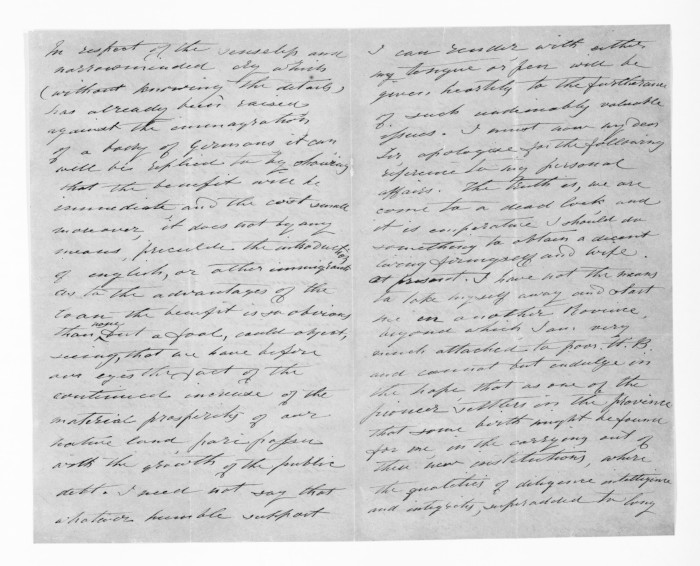 In respect of the senseless and
narrowminded cry which
(without knowing the details)
has already been raised
against the immigration
of a body of Germans it can
will be replied to by showing
that the benefit will be
immediate and the cost small
moreover it does not by any
means, preclude the introduction
of english, or other immigrants
as to the advantages of the
loan the benefit is so obvious
than none but a fool, could object,
seeing, that we have before
our eyes the fact of the
continued increase of the
material prosperity of our
native land pari passu
with the growth of the public
debt. I need not say that
whatever humble support
I can render with either
my tongue or pen will be
given heartily to the furtherance
of such undeniably valuable
I must now my dear
Sir, apologise for the following
reference to my personal
affairs. The truth is, we are
come to a dead lock and
it is imperative I should do
something to obtain a decent
living for myself and wife.
at present. I have not the means
to take myself away and start
in another Province,
beyond which I am very
much attached to poor H. B
and cannot but indulge in
the hope that as one of the
pioneer settlers in the province
that some birth might be found
for me in the carrying out of
these new institutions, where
the qualities of diligence intelligence
and integrity, superadded to long